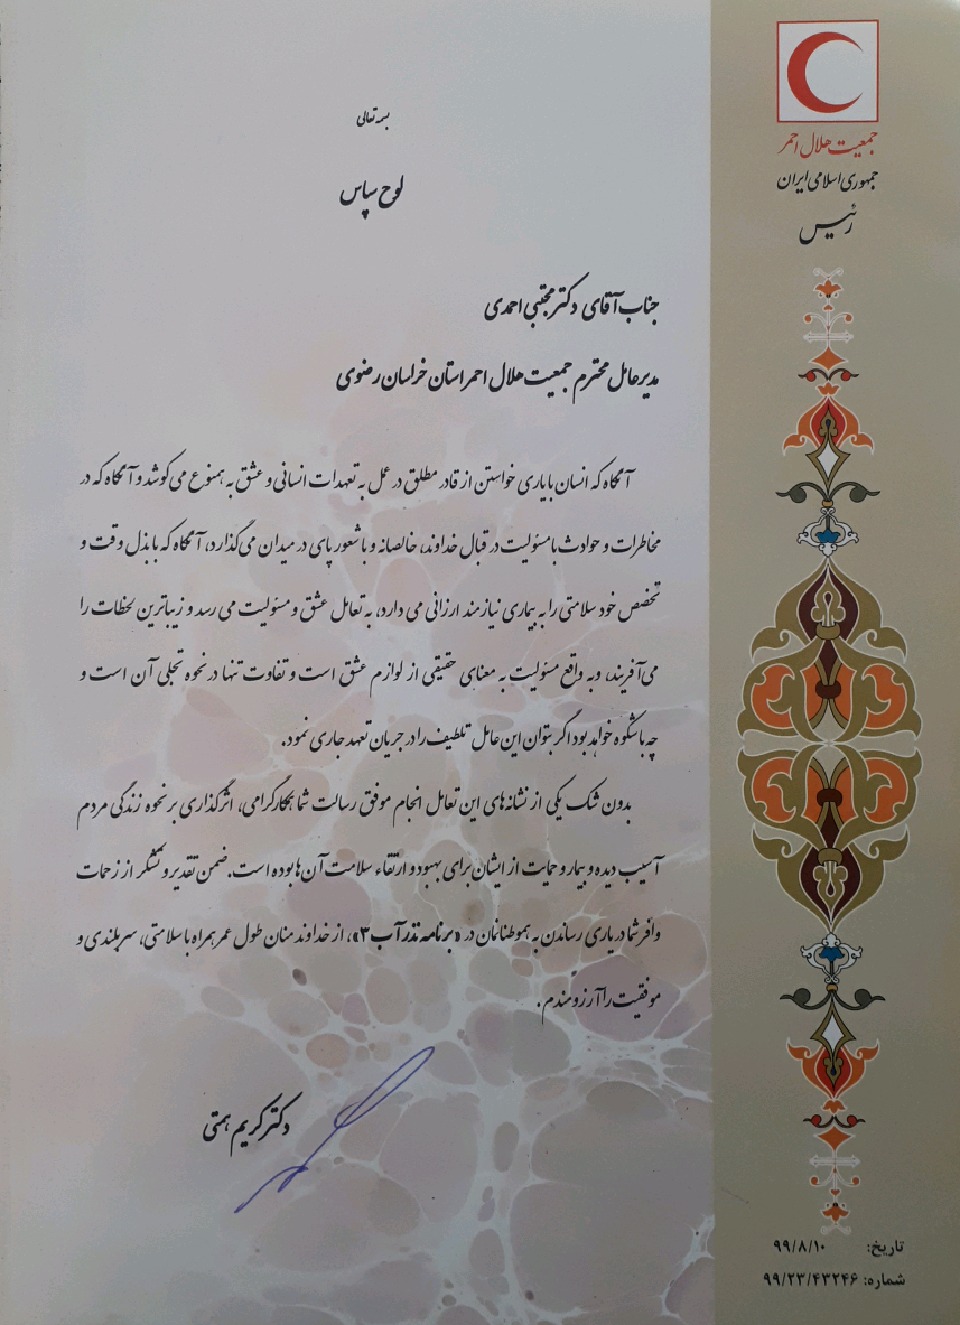 جمعیت هلال احمر
جمهوری اسلامی ایران
رئیس
بسمه تعالی
لوح سپاس
جناب آقای دکتر مجتبی احمدی
مدیرعامل محترم جمعیت هلال احمر استان خراسان رضوی
آنگاه که انسان با یاری خواستن از قادر مطلق در عمل به تعهدات انسانی و عشق به همنوع می کوشد و آنگاه که در
مخاطرات و حوادث با مسئولیت در قبال خداوند، خالصانه و با شعور پای در میدان می گذارد، آنگاه که با بذل وقت و
تخصص خود سلامتی را به بیماری نیازمند ارزانی می دارد، به تعامل عشق و مسئولیت می رسد و زیباترین لحظات را
می آفریند، و به واقع مسئولیت به معنای حقیقی از لوازم عشق است و تفاوت تنها در نحوه تجلی آن است و
چه باشکوه خواهد بود اگر بتوان این عامل تلطیف را در جریان تعهد جاری نمود.
بدون شک یکی از نشانه های این تعامل انجام موفق رسالت شما همکار گرامی، اثرگذاری بر نحوه زندگی مردم
آسیب دیده و بیمار و حمایت از ایشان برای بهبود و ارتقاء سلامت آن ها بوده است. ضمن تقدیر و تشکر از زحمات
وافر شما در یاری رساندن به هموطنانمان در «برنامه نذر آب ۳»، از خداوند منان طول عمر همراه با سلامتی، سربلندی و
موفقیت را آرزومندم.
دکتر کریم همتی
تاریخ: ۹۹/۸/۱۰
شماره: ۹۹/۲۳/۴۳۲۴۶